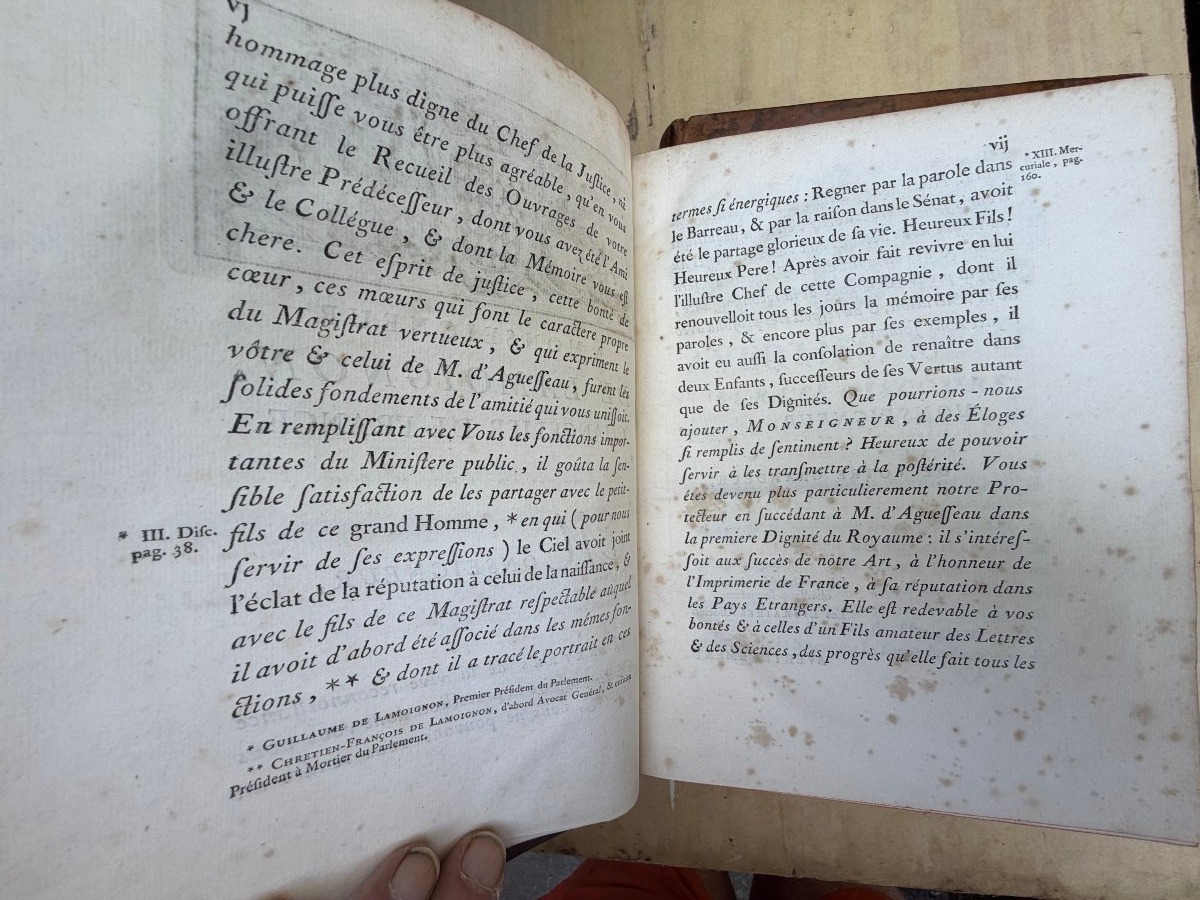 vj
hommage plus digne du Chef de la Juſtice, ni
qui puiſſe vous être plus agréable, qu'en vous
offrant le Recueil des Ouvrages de votre
illuſtre Prédéceſſeur, dont vous avez été l'Ami
& le Collégue, & dont la Mémoire vous eſt
chere. Cet eſprit de juſtice, cette bonté de
cœur, ces mœurs qui font le caractere propre
du Magiſtrat vertueux, & qui expriment le
vôtre & celui de M. d'Agueſſeau, furent les
ſolides fondements de l'amitié qui vous uniſſoit.
En rempliſſant avec Vous les fonctions impor-
tantes du Miniſtere public, il goûta la ſen-
ſible ſatisfaction de les partager avec le petit-
fils de ce grand Homme, * en qui ( pour nous
ſervir de ſes expreſſions ) le Ciel avoit joint
l'éclat de la réputation à celui de la naiſſance, &
avec le fils de ce Magiſtrat reſpectable auquel
il avoit d'abord été aſſocié dans les mêmes fon-
ctions, ** & dont il a tracé le portrait en ces
* III. Diſc.
pag. 38.
* GUILLAUME DE LAMOIGNON, Premier Préſident du Parlement.
** CHRETIEN-FRANÇOIS DE LAMOIGNON, d'abord Avocat Général, & enſuite
Préſident à Mortier du Parlement.
vij
termes ſi énergiques : Regner par la parole dans
le Barreau, & par la raiſon dans le Sénat, avoit
été le partage glorieux de ſa vie. Heureux Fils !
Heureux Pere ! Après avoir fait revivre en lui
l'illuſtre Chef de cette Compagnie, dont il
renouvelloit tous les jours la mémoire par ſes
paroles, & encore plus par ſes exemples, il
avoit eu auſſi la conſolation de renaître dans
deux Enfants, ſucceſſeurs de ſes Vertus autant
que de ſes Dignités. Que pourrions-nous
ajouter, MONSEIGNEUR, à des Éloges
ſi remplis de ſentiment ? Heureux de pouvoir
ſervir à les tranſmettre à la poſtérité. Vous
êtes devenu plus particulierement notre Pro-
tecteur en ſuccédant à M. d'Agueſſeau dans
la premiere Dignité du Royaume : il s'intéreſ-
ſoit aux ſuccès de notre Art, à l'honneur de
l'Imprimerie de France, à ſa réputation dans
les Pays Etrangers. Elle eſt redevable à vos
bontés & à celles d'un Fils amateur des Lettres
& des Sciences, des progrès qu'elle fait tous les
* XIII. Mer-
curiale, pag.
160.